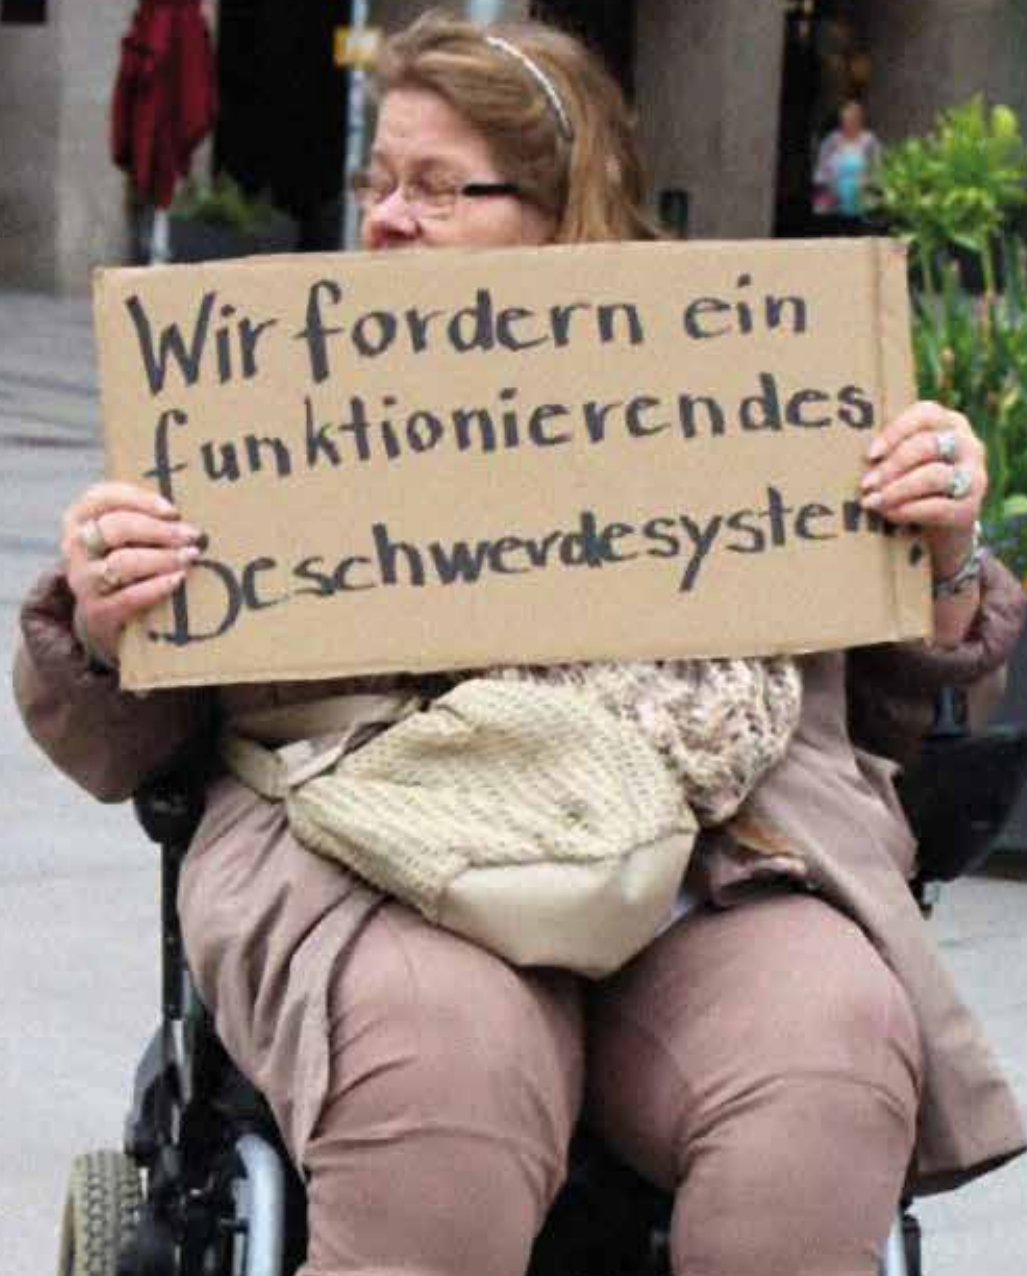 Wir fordern ein
funktionierendes
Beschwerdesystem.